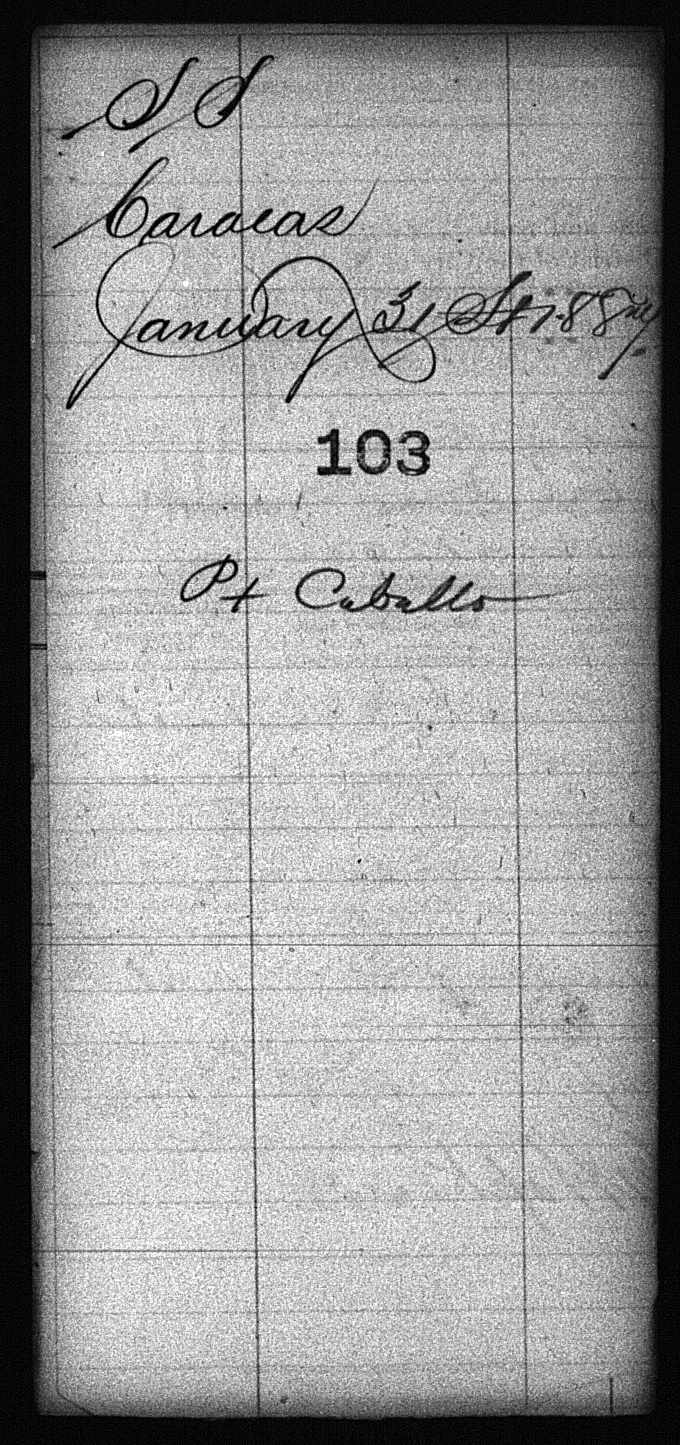 S S
Caracas
January 31 St
103
Pt Caballo